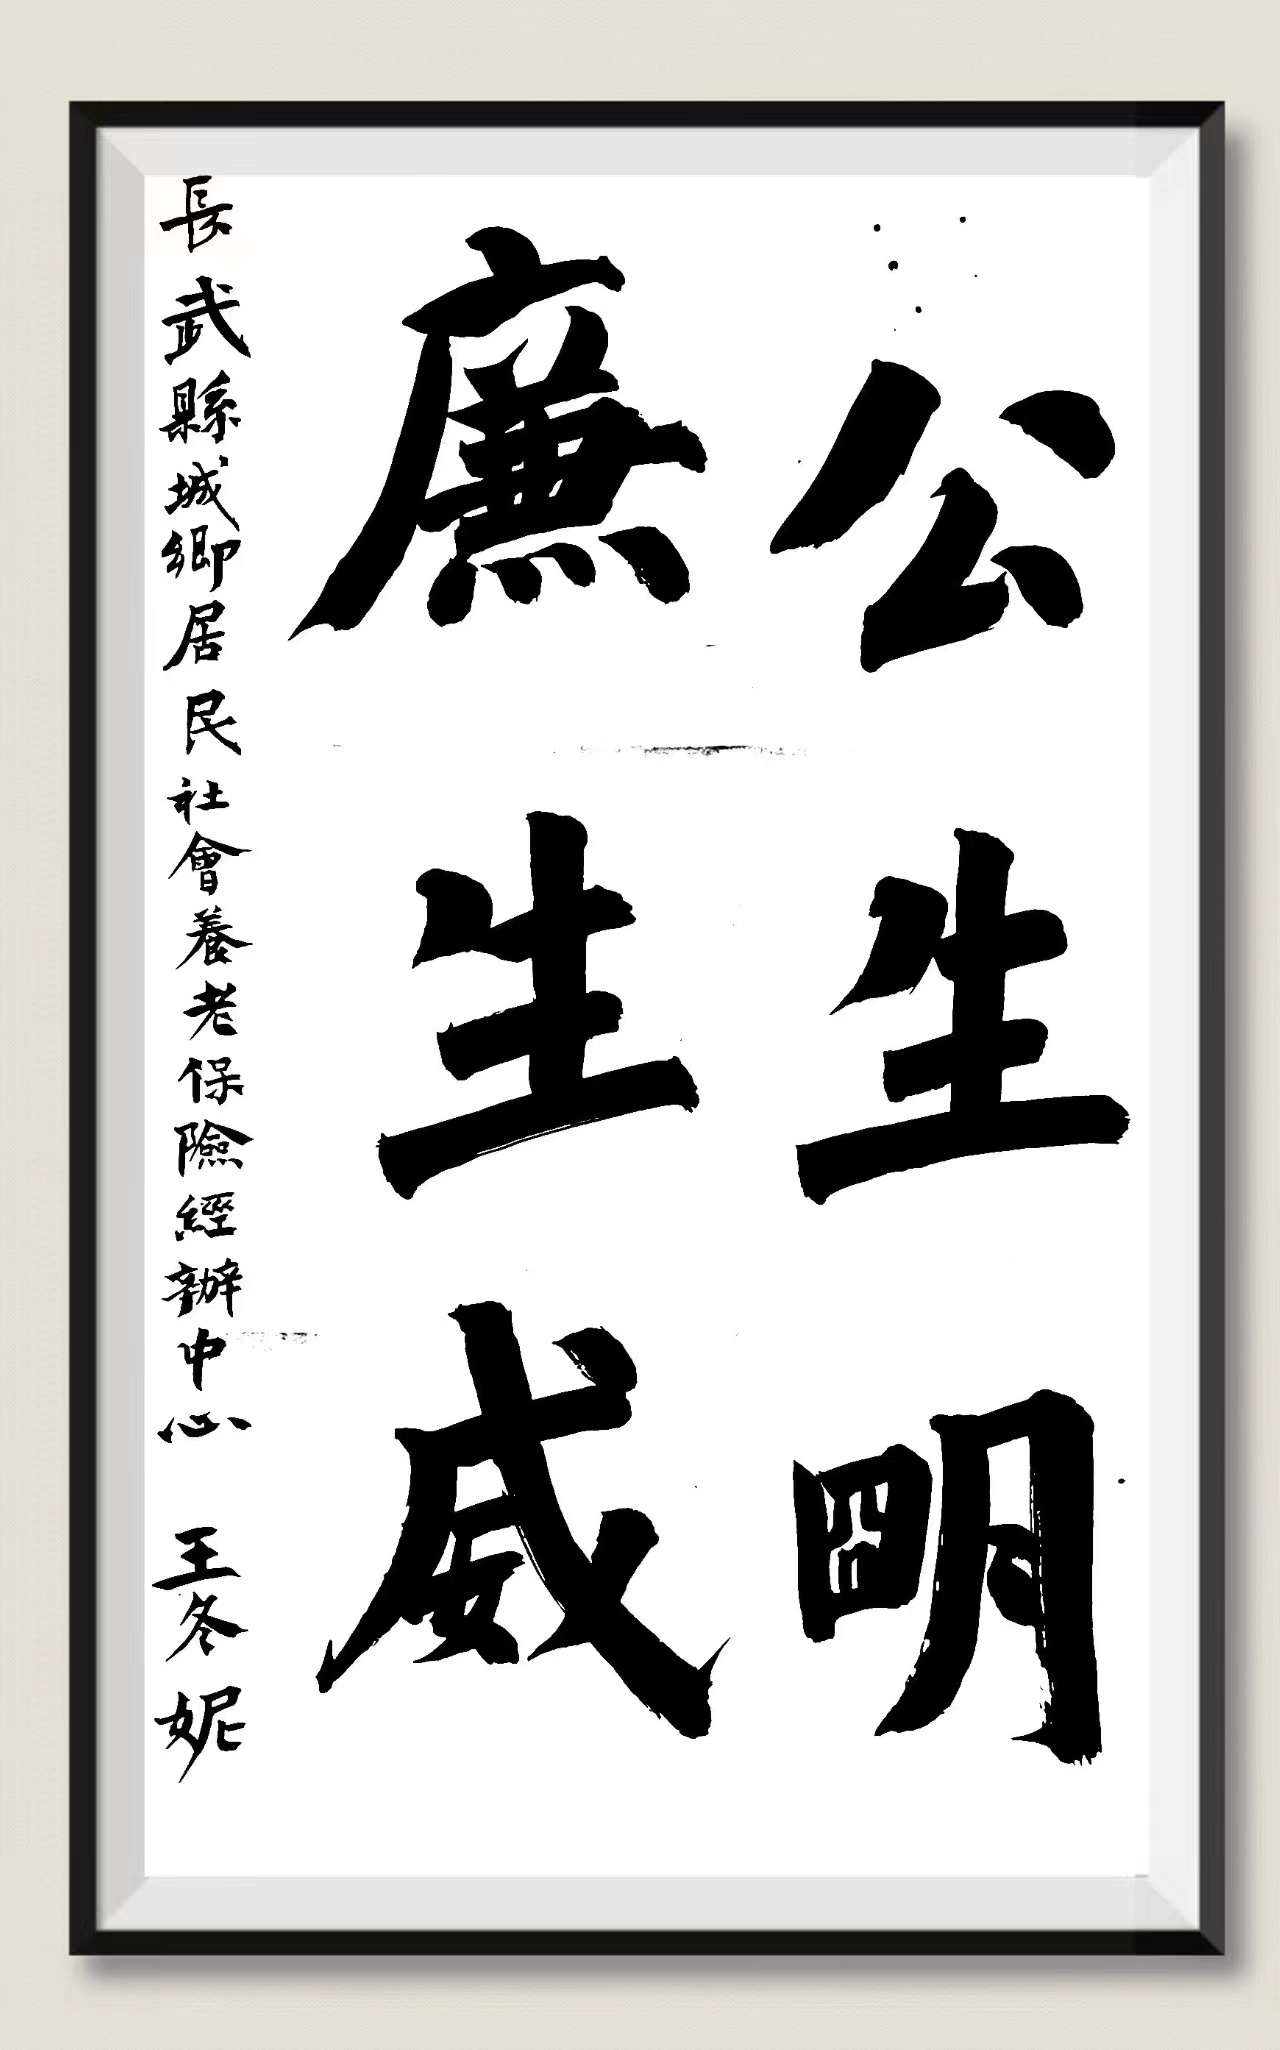 公生明
廉生威
長武縣城鄉居民社會養老保險經辦中心 王冬妮